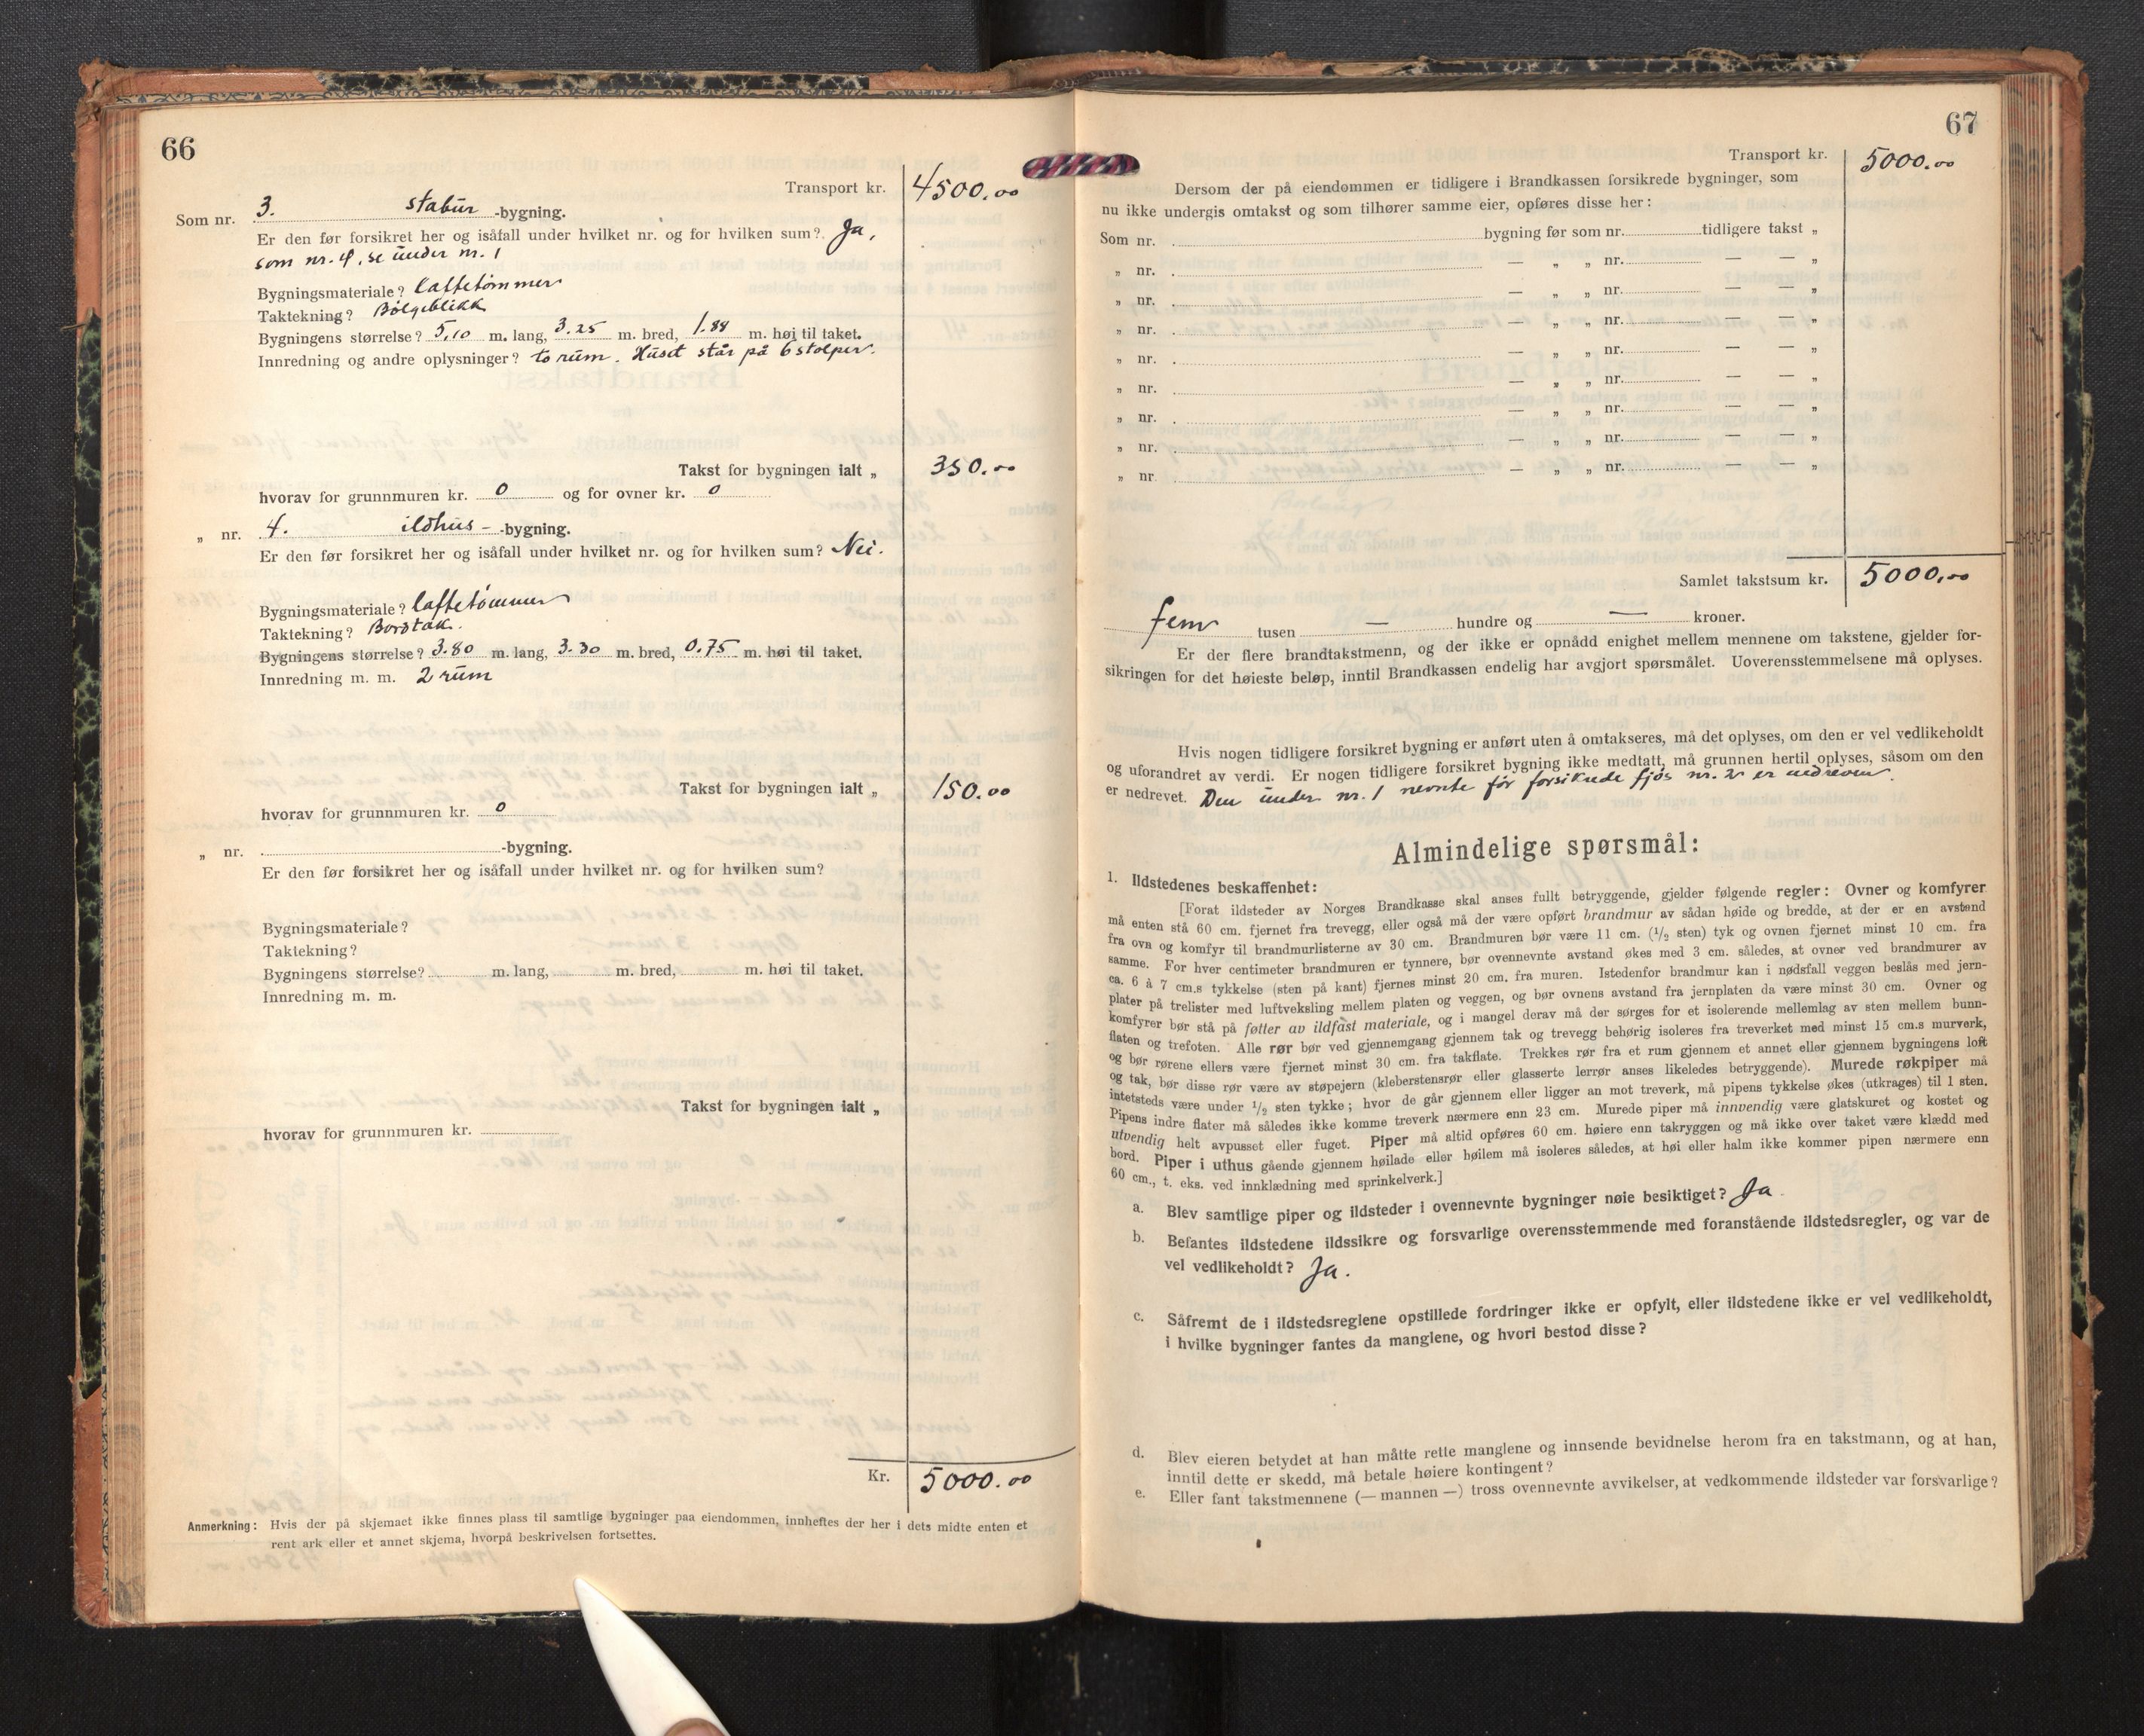 66
Transport kr. 4500.00
Som nr. 3. stabur -bygning.
Er den før forsikret her og isåfall under hvilket nr. og for hvilken sum? Ja,
som nr. 4, se under nr. 1
Bygningsmateriale? laftetømmer
Taktekning? Bølgeblikk
Bygningens størrelse? 5,10 m. lang, 3.25 m. bred, 1.88 m. høi til taket.
Innredning og andre oplysninger? to rum. Huset står på 6 stolper.
Takst for bygningen ialt „ 350.00
hvorav for grunnmuren kr. 0 og for ovner kr. 0
„ nr. 4. ildhus- -bygning.
Er den før forsikret her og isåfall under hvilket nr. og for hvilken sum? Nei.
Bygningsmateriale? laftetømmer
Taktekning? Bordtak.
Bygningens størrelse? 3.80 m. lang, 3.30 m. bred, 0.75 m. høi til taket.
Innredning m. m. 2 rum
Takst for bygningen ialt „ 150.00
hvorav for grunnmuren kr. 0
„ nr. -bygning.
Er den før forsikret her og isåfall under hvilket nr. og for hvilken sum?
Bygningsmateriale?
Taktekning?
Bygningens størrelse? m. lang, m. bred, m. høi til taket.
Innredning m. m.
Takst for bygningen ialt „
hvorav for grunnmuren kr.
Kr. 5000.00
Anmerkning: Hvis der på skjemaet ikke finnes plass til samtlige bygninger paa eiendommen, innheftes der her i dets midte enten et
rent ark eller et annet skjema, hvorpå beskrivelsen fortsettes.
67
Transport kr. 5000.00
Dersom der på eiendommen er tidligere i Brandkassen forsikrede bygninger, som
nu ikke undergis omtakst og som tilhører samme eier, opføres disse her:
Som nr. bygning før som nr. tidligere takst „
„ nr. — „ „ nr. — — „
„ nr. — „ „ nr. — — „
„ nr. — „ „ nr. — — „
„ nr. — „ „ nr. — — „
„ nr. — „ „ nr. — — „
„ nr. — „ „ nr. — — „
„ nr. — „ „ nr. — — „
„ nr. — „ „ nr. — — „
Samlet takstsum kr. 5000.00
fem tusen — hundre og — kroner.
Er der flere brandtakstmenn, og der ikke er opnådd enighet mellem mennene om takstene, gjelder for-
sikringen for det høieste beløp, inntil Brandkassen endelig har avgjort spørsmålet. Uoverensstemmelsene må oplyses.
Hvis nogen tidligere forsikret bygning er anført uten å omtakseres, må det oplyses, om den er vel vedlikeholdt
og uforandret av verdi. Er nogen tidligere forsikret bygning ikke medtatt, må grunnen hertil oplyses, såsom om den
er nedrevet. Den under nr. 1 nevnte før forsikrede fjøs nr. 2 er nedreven.
Almindelige spørsmål:
1. Ildstedenes beskaffenhet:
[Forat ildsteder av Norges Brandkasse skal anses fullt betryggende, gjelder følgende regler: Ovner og komfyrer
må enten stå 60 cm. fjernet fra trevegg, eller også må der være opført brandmur av sådan høide og bredde, at der er en avstand
fra ovn og komfyr til brandmurlisterne av 30 cm. Brandmuren bør være 11 cm. (1/2 sten) tyk og ovnen fjernet minst 10 cm. fra
samme. For hver centimeter brandmuren er tynnere, bør ovennevnte avstand økes med 3 cm. således, at ovner ved brandmurer av
ca. 6 à 7 cm.s tykkelse (sten på kant) fjernes minst 20 cm. fra muren. Istedenfor brandmur kan i nødsfall veggen beslås med jern-
plater på trelister med luftveksling mellem platen og veggen, og bør ovnens avstand fra jernplaten da være minst 30 cm. Ovner og
komfyrer bør stå på føtter av ildfast materiale, og i mangel derav må der sørges for et isolerende mellemlag av sten mellem bunn-
flaten og trefoten. Alle rør bør ved gjennemgang gjennem tak og trevegg behørig isoleres fra treverket med minst 15 cm.s murverk,
og bør rørene ellers være fjernet minst 30 cm. fra takflate. Trekkes rør fra et rum gjennem et annet eller gjennem bygningens loft
og tak, bør disse rør være av støpejern (kleberstensrør eller glasserte lerrør anses likeledes betryggende). Murede røkpiper må
intetsteds være under 1/2 sten tykke; hvor de går gjennem eller ligger an mot treverk, må pipens tykkelse økes (utkrages) til 1 sten.
Pipens indre flater må således ikke komme treverk nærmere enn 23 cm. Murede piper må innvendig være glatskuret og kostet og
utvendig helt avpusset eller fuget. Piper må altid opføres 60 cm. høiere enn takryggen og må ikke over taket være klædd med
bord. Piper i uthus gående gjennem høilade eller høilem må isoleres således, at høi eller halm ikke kommer pipen nærmere enn
60 cm., t. eks. ved innklædning med sprinkelverk.]
a. Blev samtlige piper og ildsteder i ovennevnte bygninger nøie besiktiget? Ja.
b. Befantes ildstedene ildssikre og forsvarlige overensstemmende med foranstående ildstedsregler, og var de
vel vedlikeholdt? Ja.
c. Såfremt de i ildstedsreglene opstillede fordringer ikke er opfylt, eller ildstedene ikke er vel vedlikeholdt,
i hvilke bygninger fantes da manglene, og hvori bestod disse?
d. Blev eieren betydet at han måtte rette manglene og innsende bevidnelse herom fra en takstmann, og at han,
inntil dette er skedd, må betale høiere kontingent?
e. Eller fant takstmennene (— mannen —) tross ovennevnte avvikelser, at vedkommende ildsteder var forsvarlige?